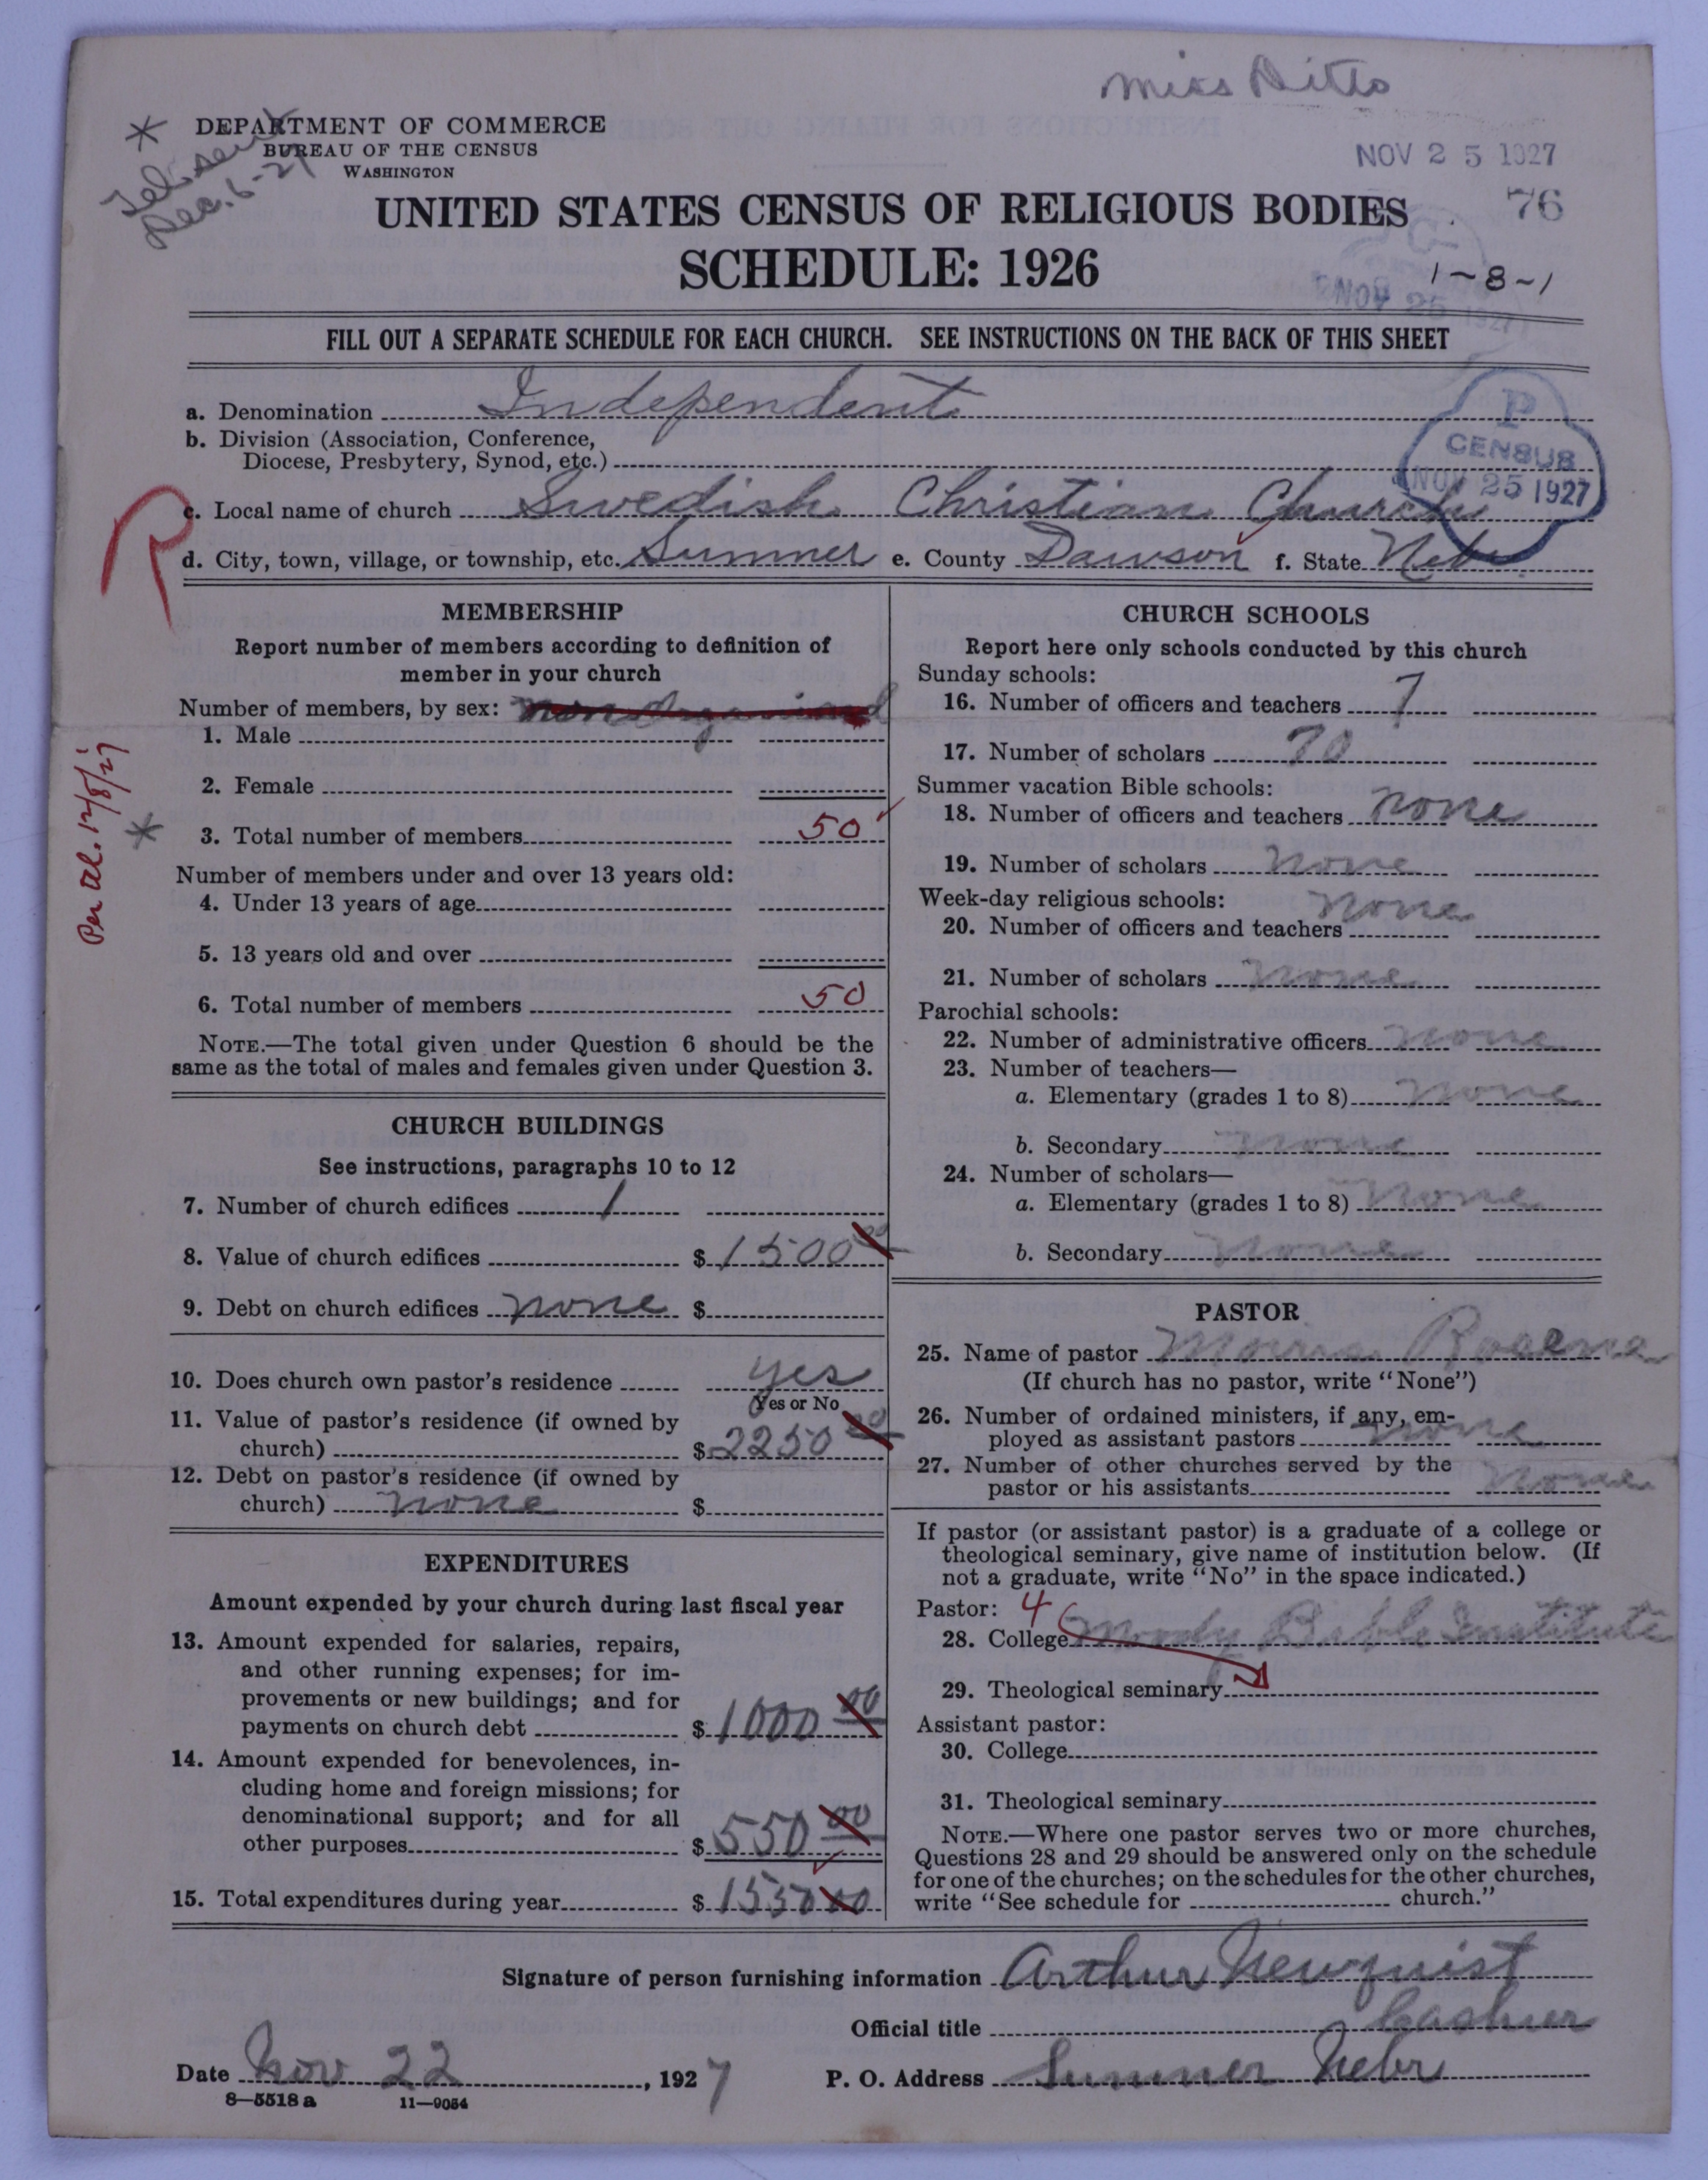 Miss Ditto
DEPARTMENT OF COMMERCE
BUREAU OF THE CENSUS
WASHINGTON
Tel. sent
Dec. 6-27
NOV 25 1927
UNITED STATES CENSUS OF RELIGIOUS BODIES
76
SCHEDULE: 1926
NOV 25 1927
1-8-1
FILL OUT A SEPARATE SCHEDULE FOR EACH CHURCH. SEE INSTRUCTIONS ON THE BACK OF THIS SHEET
a. Denomination Independent
b. Division (Association, Conference,
Diocese, Presbytery, Synod, etc.)
P
CENSUS
NOV 25 1927
R
c. Local name of church Swedish Christian Church
d. City, town, village, or township, etc. Sumner e. County Dawson f. State Nebr.
MEMBERSHIP
Report number of members according to definition of
member in your church
Number of members, by sex: Non Organized
1. Male
2. Female
3. Total number of members 50
Number of members under and over 13 years old:
4. Under 13 years of age
5. 13 years old and over
6. Total number of members 50
Per tel. 12/8/27
NOTE.—The total given under Question 6 should be the
same as the total of males and females given under Question 3.
CHURCH BUILDINGS
See instructions, paragraphs 10 to 12
7. Number of church edifices 1
8. Value of church edifices $ 1500 00
9. Debt on church edifices none $
10. Does church own pastor's residence yes
Yes or No
11. Value of pastor's residence (if owned by
church) $ 2250 00
12. Debt on pastor's residence (if owned by
church) none $
EXPENDITURES
Amount expended by your church during last fiscal year
13. Amount expended for salaries, repairs,
and other running expenses; for im-
provements or new buildings; and for
payments on church debt $ 1000 00
14. Amount expended for benevolences, in-
cluding home and foreign missions; for
denominational support; and for all
other purposes $ 550 00
15. Total expenditures during year $ 1550 00
CHURCH SCHOOLS
Report here only schools conducted by this church
Sunday schools:
16. Number of officers and teachers 7
17. Number of scholars 70
Summer vacation Bible schools:
18. Number of officers and teachers none
19. Number of scholars none
Week-day religious schools:
20. Number of officers and teachers none
21. Number of scholars none
Parochial schools:
22. Number of administrative officers none
23. Number of teachers—
a. Elementary (grades 1 to 8) none
b. Secondary none
24. Number of scholars—
a. Elementary (grades 1 to 8) none
b. Secondary none
PASTOR
25. Name of pastor Morris
(If church has no pastor, write "None")
26. Number of ordained ministers, if any, em-
ployed as assistant pastors none
27. Number of other churches served by the
pastor or his assistants none
If pastor (or assistant pastor) is a graduate of a college or
theological seminary, give name of institution below. (If
not a graduate, write "No" in the space indicated.)
Pastor: 4
28. College Moody Bible Institute
29. Theological seminary
Assistant pastor:
30. College
31. Theological seminary
NOTE.—Where one pastor serves two or more churches,
Questions 28 and 29 should be answered only on the schedule
for one of the churches; on the schedules for the other churches,
write "See schedule for church."
Signature of person furnishing information Arthur Newquist
Official title Cashier
Date Nov 22, 1927 P. O. Address Sumner Nebr
8—5518 a 11—9054